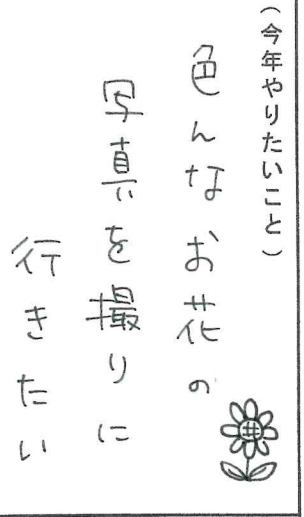 （今年やりたいこと）
色んなお花の
写真を撮りに
行きたい